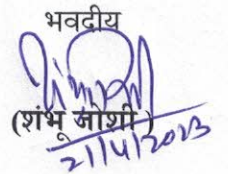 भवदीय
(शंभू जोशी)
21/4/2023